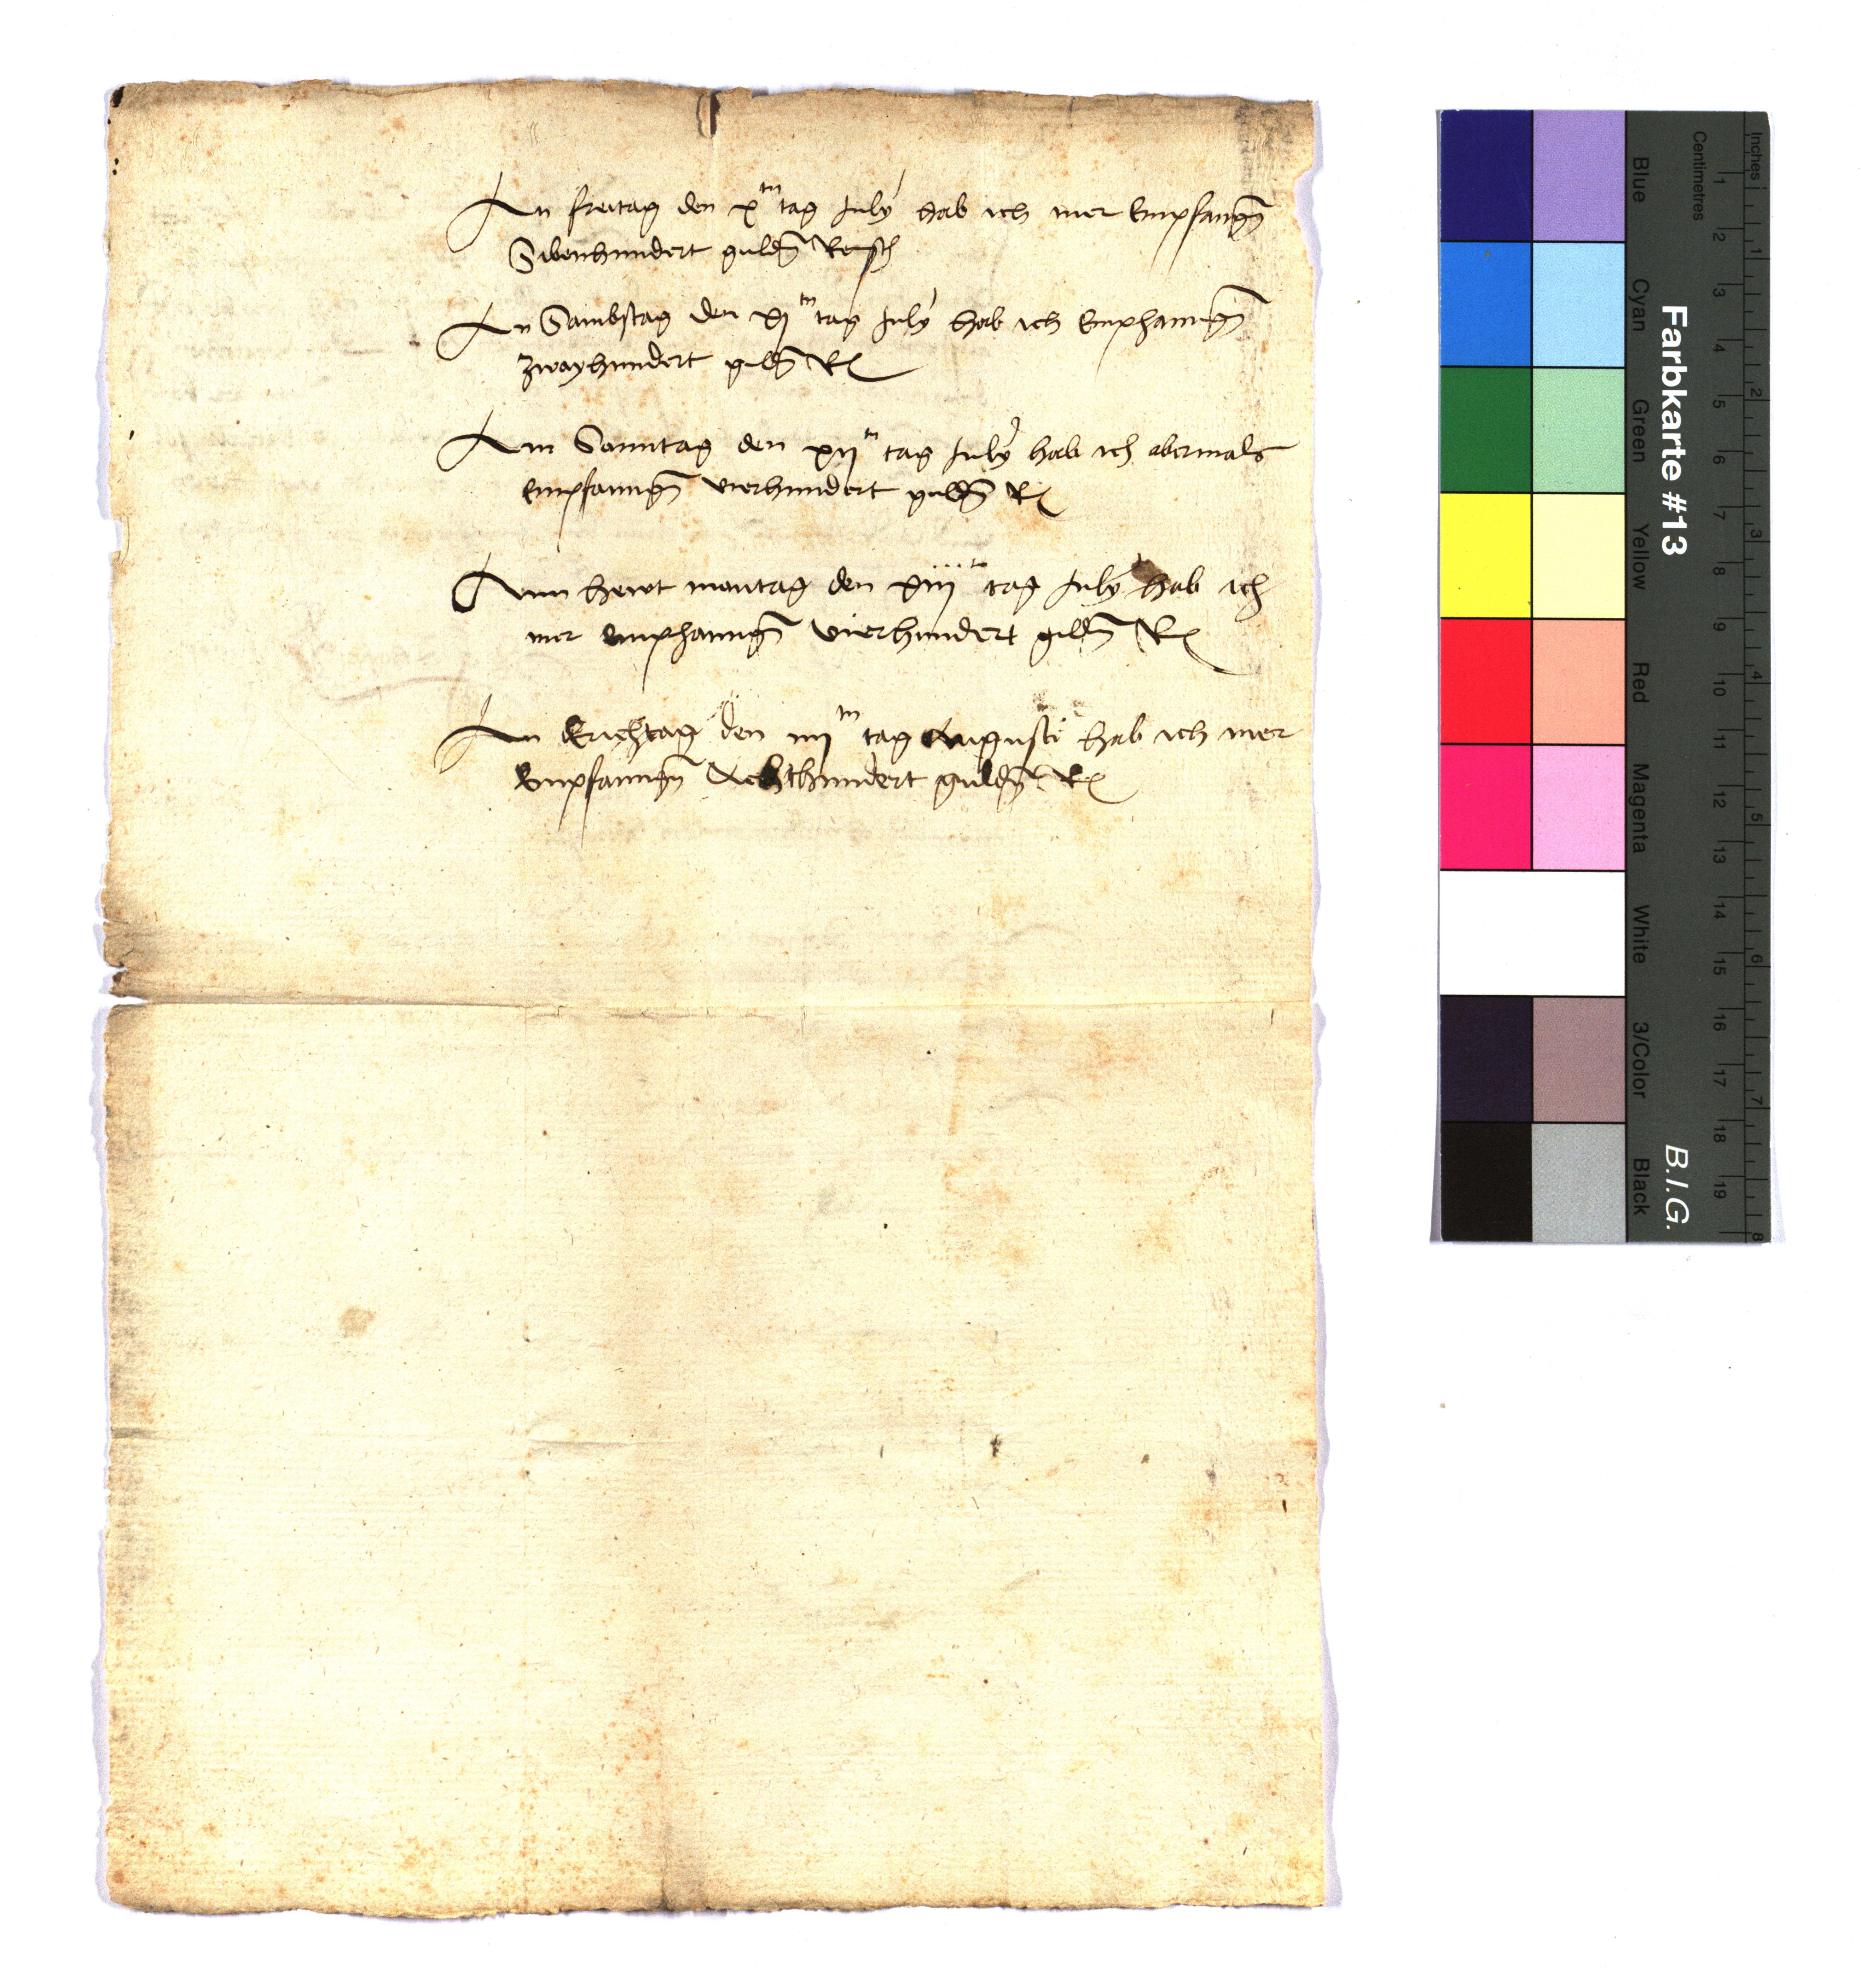 An freitag den xten tag July hab ich mer Empfangn̄
Sibenhundert guldn̄ Reinsch
An Sambstag den xj tn tag July hab ich Emphanngn̄
zwayhundert guldn̄ R
Am Sonntag den xij tn tag July hab ich abermals
empfanngn̄ vierhundert guldn̄ R
Ann hewt montag den xiij tn tag July hab ich
mer emphanngn̄ vierhundert guldn̄ R
An Erichtag den iiij tn tag Augusti hab ich mer
Empfanngn̄ Achthundert guldn̄ R
Farbkarte #13
B.I.G.
Centimetres
Inches
Blue
Cyan
Green
Yellow
Red
Magenta
White
3/Color
Black
1 2 3 4 5 6 7 8 9 10 11 12 13 14 15 16 17 18 19
1 2 3 4 5 6 7 8